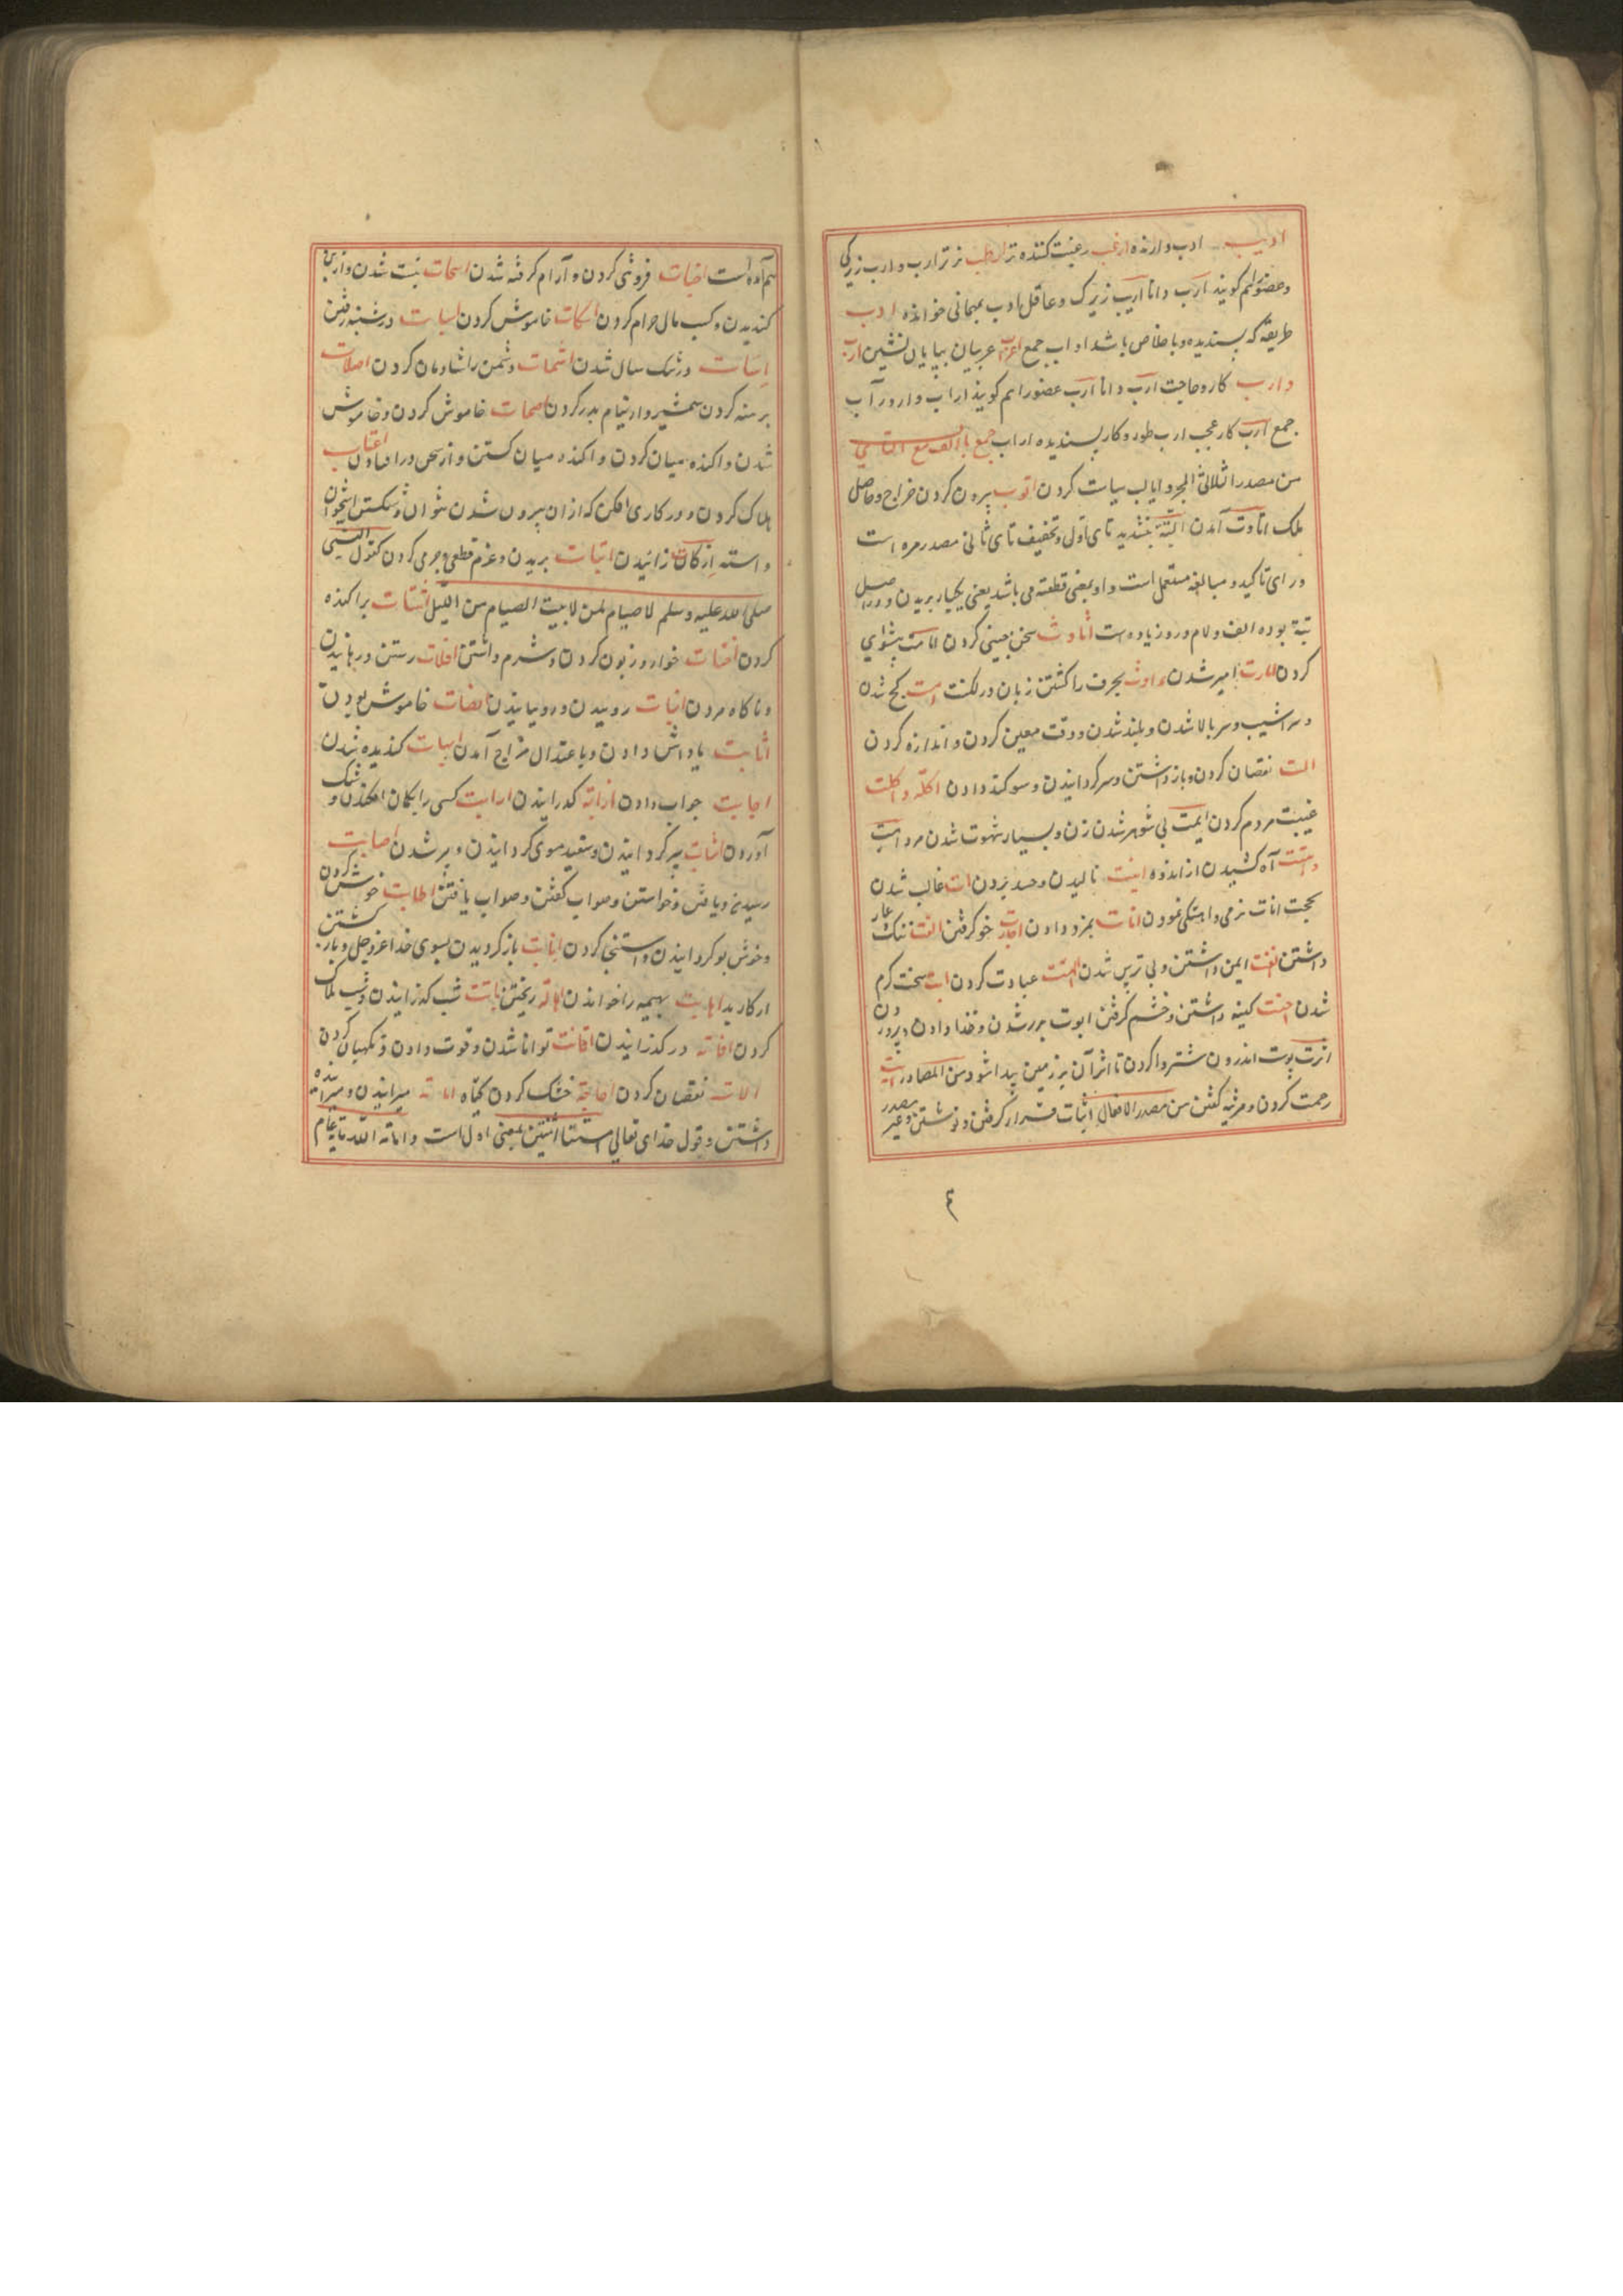 ادیب ادب دارنده ارغب رغبت کننده تر ارطب تر تر ارب و ارب زیرکی
و عضو را هم کویند ارب دانا اریب زیرک و عاقل ادب بمهمانی خواندن ادب
طریقه که پسندیده و باخلاص باشد اداب جمع اعراب عربیان بیابان نشین ارب
و ارب کار و حاجت ارب دانا ارب عضو را هم کویند اراب و ارور آب
جمع ارب کار عجب ادب طور و کار پسندیده اداب جمع باب الف مع التای
من مصدر الثلاثی المجرد ایالب سیاست کردن اتوب بیرون کردن خراج و حاصل
ملک اتاوت آمدن البتة بتشدید تای اول و تخفیف تای ثانی مصدر مره است
و رای تاکید و مبالغه مستعمل است و او بمعنی قطعته می باشد یعنی یکبار بریدن و در اصل
بتة بوده الف و لام درو زیاده است اثاوث سخن چینی کردن امامت پیشوایی
کردن امارت امیر شدن بحرف را کشتن زبان در لکنت امت کج شدن
و سراشیب و سر بالا شدن و بلند شدن و وقت معین کردن و اندازه کردن
الت نقصان کردن و باز داشتن و سر کردانیدن و سوکند دادن اکلة و اکلت
غیبت مردم کردن ایمت بی شوهر شدن زن و بسیار شهوت شدن مرد
آه کشیدن از اندوه انیت نالیدن و حسد بردن ات غالب شدن
بحجت انات نرمی و اهستکی نمودن انات بمزد دادن اجارت خو کرفتن الفت ننک عار
داشتن انفت ایمن داشتن و بی ترس شدن الهت عبادت کردن ابت سخت کرم
شدن احنت کینه داشتن و خشم کرفتن ابوت پدر شدن و غذا دادن و پروردن
اثرت پوست اندرون شتر وا کردن تا اثر آن بر زمین پیدا شود من المصادر
رحمت کردن و مرثیه کفتن من مصدر الافعال اثبات قرار کرفتن و نوشتن و غیر مصدر
٤
هم آمده است اخبات فروتنی کردن و آرام کرفته شدن اسحات نیست شدن و از بیخ
کندیدن و کسب مال حرام کردن اسکات خاموش کردن اسبات در شنبه رفتن
اسنات در تنک سال شدن اشمات دشمن را شادمان کردن اصلات
برهنه کردن شمشیر و از نیام بدر کردن اصمات خاموش کردن و خاموش
شدن و اکنده میان کردن و اکنده میان کشتن و از سخن در افتادن اعنات
هلاک کردن و در کاری افکن که ازان بیرون شدن نتوان و شکستن استخوان
و استه ازکات زانیدن ابتات بریدن و عزم قطعی و جرمی کردن کقول النبی
صلی الله علیه وسلم لا صیام لمن لا یبیت الصیام من اللیل اشتات پراکنده
کردن اخنات خوار و زبون کردن و شرم داشتن افلات رستن و رهانیدن
و ناکاه مردن انبات روییدن و رویانیدن انصات خاموش بودن
اثابت پاداش دادن و باعتدال مزاج آمدن اهبات کندیده شدن
اجابت جواب دادن اذابة کدازانیدن ارابت کسی را بکمان افکندن و شک
آوردن اشابت پیر کردانیدن و سفید موی کردانیدن و پیر شدن اصابت
رسیدن و یافتن و خواستن و صواب کفتن و صواب یافتن اطابت خوش کردن
و خوش بو کردانیدن و استنجا کردن انابت باز کردیدن بسوی خدا عز و جل و باز کشتن
از کار بد اهابت بهیمه را خواندن اباتة ریختن اباتت شب کذرانیدن و شب هلاک
کردن افاتة در کذرانیدن اقاتت توانا شدن و قوت دادن و نکهبانی کردن
الات نقصان کردن اجاحة خشک کردن کیاه اماتة میرانیدن و میرانده
داشتن و قول خدای تعالی امتنا اثنتین بمعنی اول است و اماته الله مایة عام